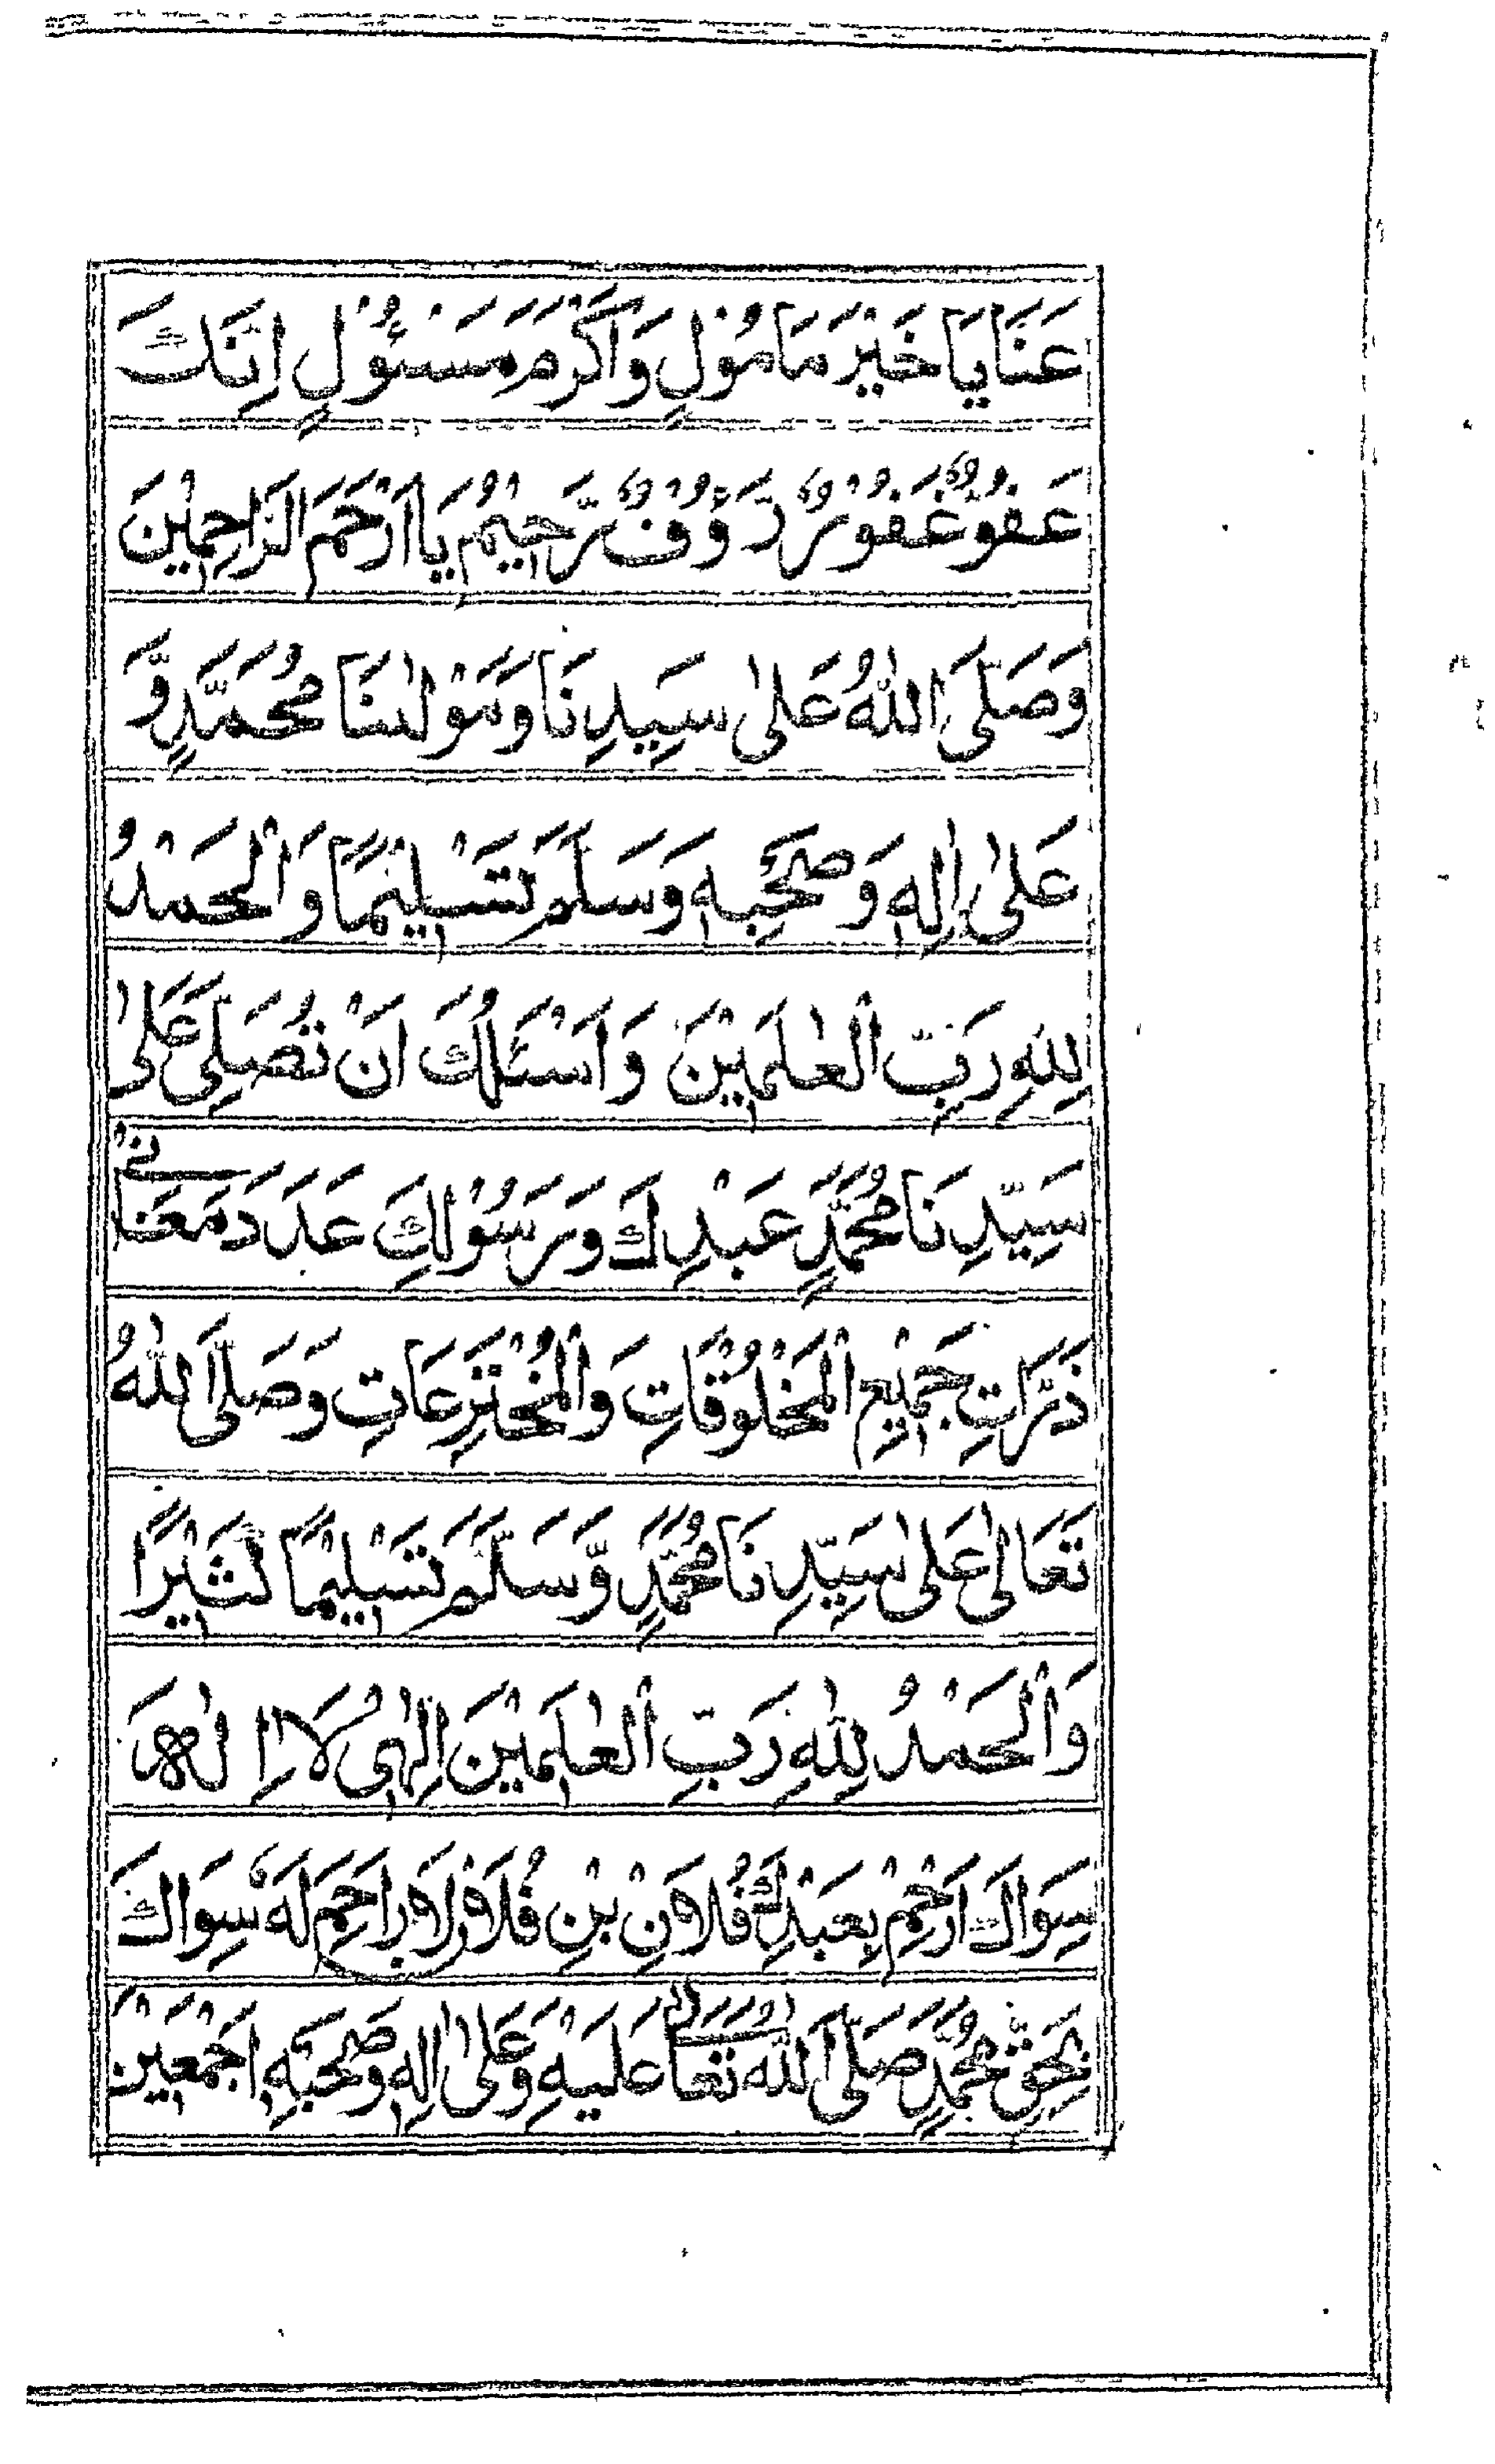 عَنَّا يَا خَيْرَ مَامُوْلٍ وَّاَكْرَمَ مَسْئُوْلٍ اِنَّكَ
عَفُوٌّ غَفُوْرٌ رَّؤُوْفٌ رَّحِيْمٌ يَا اَرْحَمَ الرَّاحِمِيْنَ
وَصَلَّى اللّٰهُ عَلٰى سَيِّدِنَا وَمَوْلٰىنَا مُحَمَّدٍ وَّ
عَلٰى اٰلِهٖ وَصَحْبِهٖ وَسَلَّمَ تَسْلِيْمًا وَالْحَمْدُ
لِلّٰهِ رَبِّ الْعٰلَمِيْنَ وَاَسْئَلُكَ اَنْ تُصَلِّىَ عَلٰى
سَيِّدِنَا مُحَمَّدٍ عَبْدِكَ وَرَسُوْلِكَ عَدَدَ مَعَانِىْ
ذَرَّاتِ جَمِيْعِ الْمَخْلُوْقَاتِ وَالْمُخْتَرِعَاتِ وَصَلَّى اللّٰهُ
تَعَالٰى عَلٰى سَيِّدِنَا مُحَمَّدٍ وَّسَلَّمَ تَسْلِيْمًا كَثِيْرًا
وَالْحَمْدُ لِلّٰهِ رَبِّ الْعٰلَمِيْنَ اِلٰهِىْ لَا اِلٰهَ
سِوَاكَ اَرْحَمْ بِعَبْدِكَ فُلَانْ بْنِ فُلَانْ لَا رَاحِمَ لَهٗ سِوَاكَ
بِحَقِّ مُحَمَّدٍ صَلَّى اللّٰهُ تَعَالٰى عَلَيْهِ وَعَلٰى اٰلِهٖ وَصَحْبِهٖ اَجْمَعِيْنَ